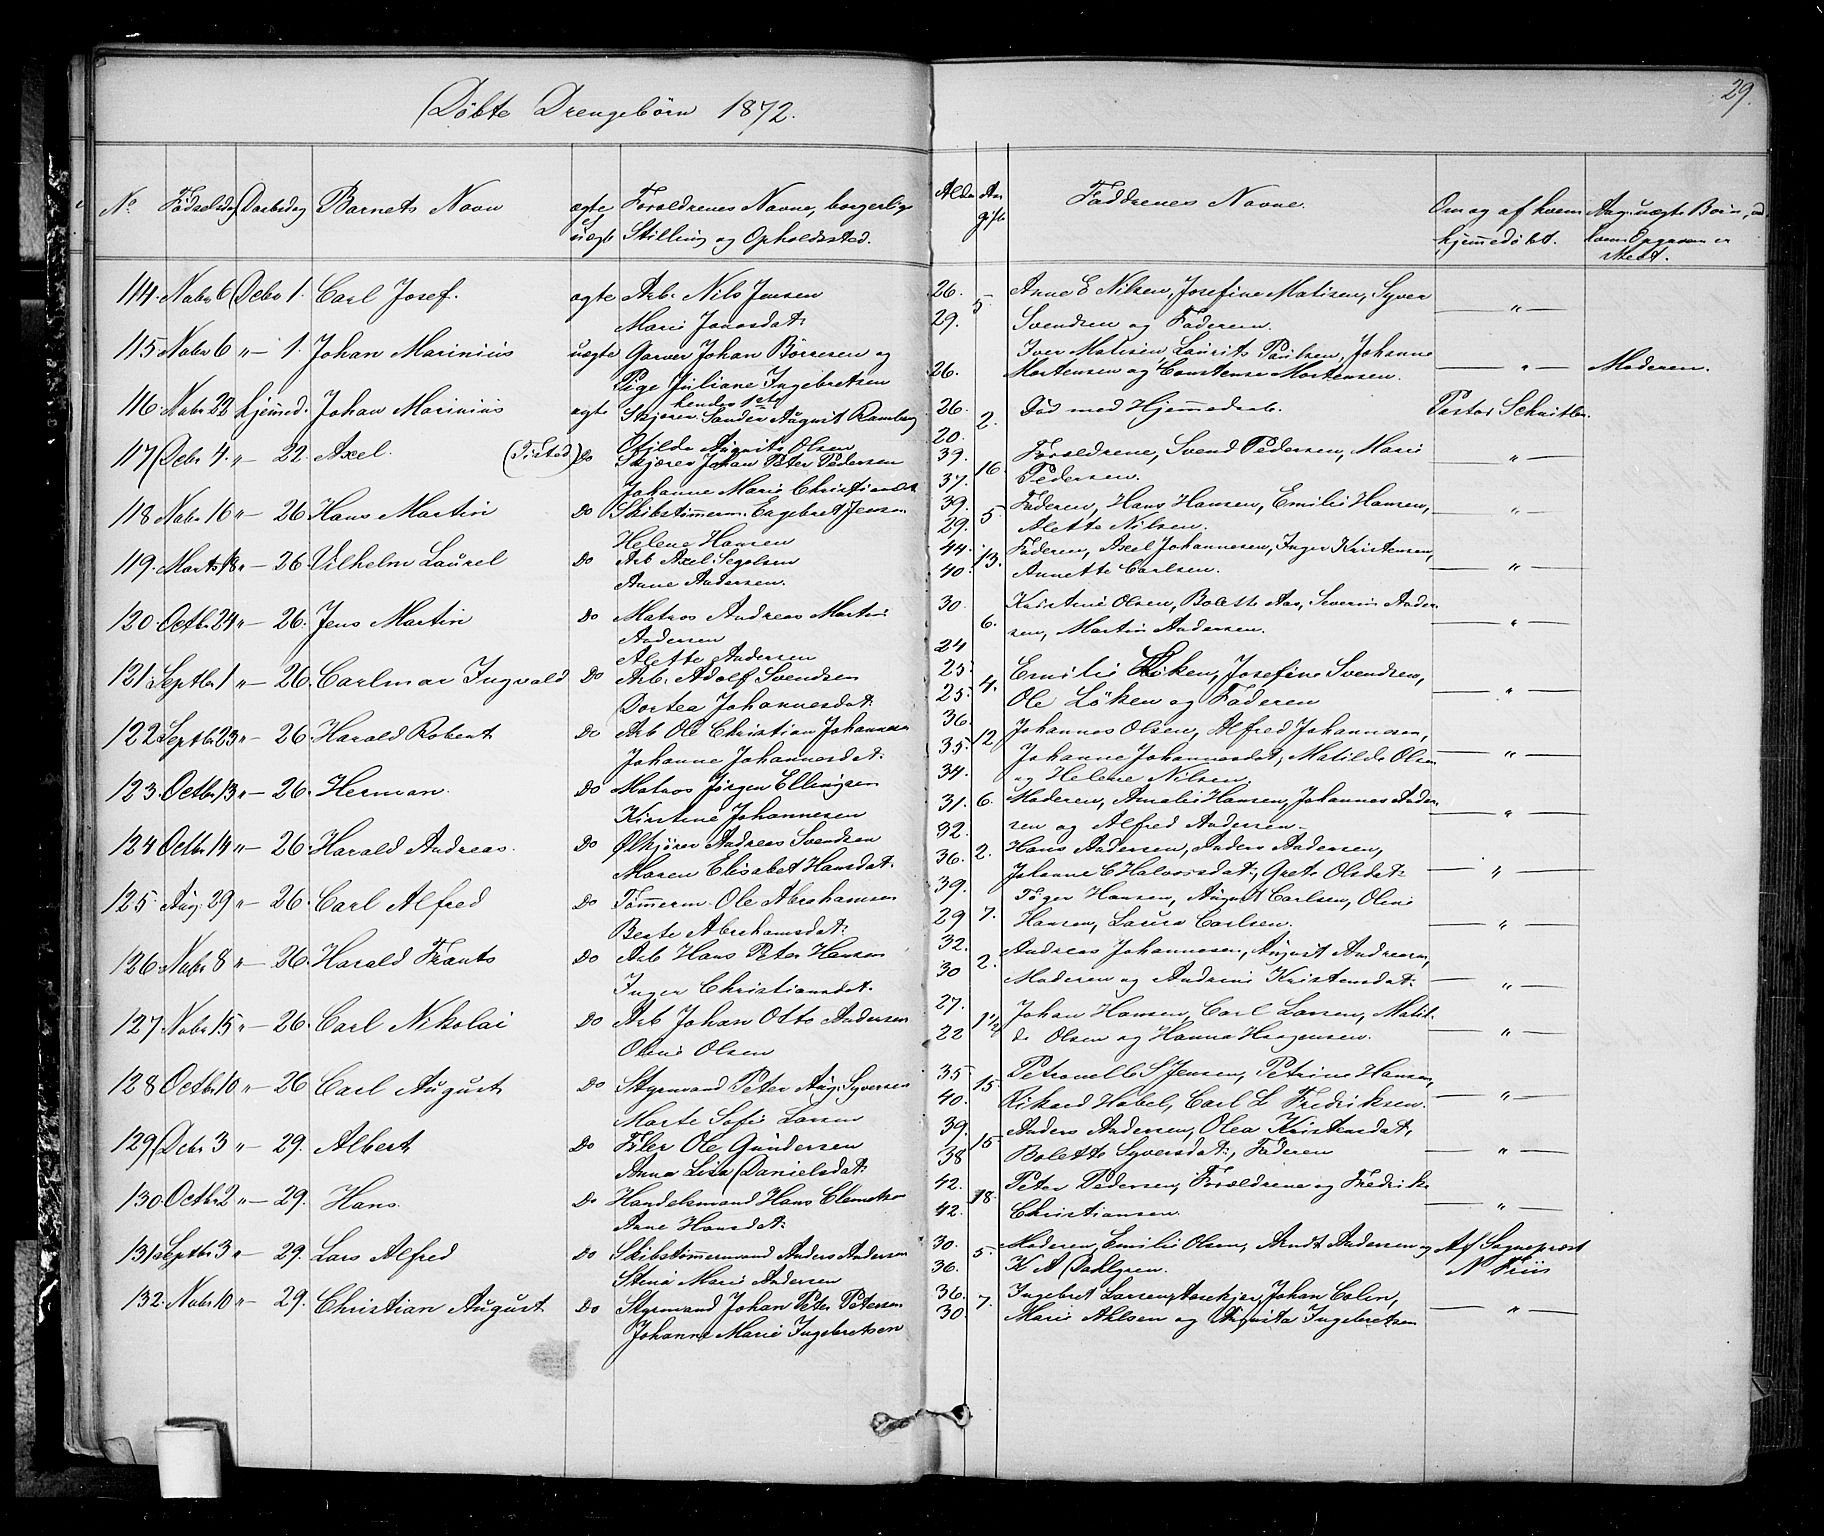 Døbte Drengebörn 1872.
29.
No Fødselsdag Daabsdag Barnets Navn ægte uægte Forældrenes Navne, borgerlige Stilling og Opholdssted.
Alder Aar gifte Faddrenes Navne. Om og af hvem hjemmedøbt. Ang. uægte Børn, hvem Opgaven er skedt.
114. Novbr 6 Decbr 1. Carl Josef. ægte Arb. Nils Jensen 26. 5. Anne E Nilsen, Josefine Matisen, Syver — " —
Marie Jonasdat: 29. Svendsen og Faderen.
115 Novbr 6 " — 1. Johan Marinius uægte Garver Johan Börresen og Iver Matisen, Laurits Paulsen, Johanne
Pige Juliane Ingebretsen 26. Mortensen og Constense Mortensen. — " — Moderen.
hendes 1ste
116 Novbr 22 hjemmed. Johan Marinius ægte Skjører Sander August Ramberg 26. 2. Død med Hjemmedaab. Pastor Schnitler.
Otilde Augusta Olsen 20.
117 Decbr 4. " — 22. Axel. (Tistad) Do Skjører Johan Peter Pedersen 39. 16 Forældrene, Svend Pedersen, Marie — " —
Johanne Marie Christiansdt 37. Pedersen.
118 Novbr 16 " — 26 Hans Martin Do Skibstømmerm. Engebret Jensen 39. 5. Faderen, Hans Hansen, Emilie Hansen, — " —
Helene Hansen 29. Alette Nilsen.
119. Marts 18 " — 26. Vilhelm Laurel Do Arb Axel Segolsen 44. 13. Faderen, Axel Johannesen, Inger Kristensen,
Anne Andersen. 40. Annette Carlsen. — " —
120. Octbr 24 " — 26. Jens Martin Do Matros Andreas Martin 30. 6. Kristine Olsen, Bolette Aas, Severin Ander-
Andersen sen, Martin Andersen. — " —
Alette Andersen 24
121. Septbr 1 " — 26. Carlmar Ingvald Do Arb. Adolf Svendsen 25. 4. Emilie Løken, Josefine Svendsen,
Dortea Johannesdat: 25. Ole Løken og Faderen — " —
122 Septbr 23 " — 26. Harald Robert Do Arb Ole Christian Johannesen 36. 12 Johannes Olsen, Alfred Johannesen,
Johanne Johannesdat: 35. Johanne Johannesdat, Matilde Olsen — " —
34. og Helene Nilsen.
123 Octbr 13 " — 26. Herman. Do Matros Jørgen Ellingsen 31. 6. Moderen, Amalie Hansen, Johannes Ander-
Kirstine Johannesen 32. sen og Alfred Andersen. — " —
124 Octbr 14 " — 26. Harald Andreas. Do Ølkjører Andreas Svendsen 36. 2. Hans Andersen, Anders Andersen,
Maren Elisabet Hansdat: 39. Johanne E Halvorsdat:, Grete Olsdat: — " —
125. Aug: 29 " — 26. Carl Alfred Do Tømmerm. Ole Abrahamsen 7. Tøger Hansen, August Carlsen, Oline
Beate Abrahamsdat: 29 Hansen, Laura Carlsen. — " —
126 Novbr 8 " — 26. Harald Frants Do Arb Hans Peter Hansen 32. 2. Andreas Johannesen, August Andresen,
Inger Christiansdat. 30 Moderen og Andrine Kristensdat: — " —
127 Novbr 15 " — 26. Carl Nikolai Do Arb Johan Otto Andersen 27. 1½ Johan Hansen, Carl Larsen, Matil-
Oline Olsen 22 de Olsen og Hanna Haagensen. — " —
128 Octbr 10 " — 26 Carl August Do Styrmand Peter Aug: Syversen 35 15 Petronelle S Jensen, Petrine Hansen,
Marte Sofie Larsen 40. Rikard Habel, Carl L Fredriksen. — " —
129 Decbr 3 " — 29. Albert Do Filer Ole Gundersen 39. 15 Anders Andersen, Olea Kristensdat,
Anna Lisa Danielsdat: 38 Bolette Syversdat:, Faderen — " —
130 Octbr 2 " — 29. Hans. Do Handelsmand Hans Clemetsen 42. 18. Peter Pedersen, Forældrene og Fredrik
Anne Hansdat: 42. Christiansen. — " —
131 Septbr 3 " — 29. Lars Alfred Do Skibstømmermand Anders Andersen 30. 5. Moderen, Emilie Olsen, Arndt Andersen og Af Sognepræst
Stina Marie Andersen 36. K A Dahlgren. N Friis
132. Novbr 10 " — 29. Christian August Do Styrmand Johan Peter Petersen 36. 7. Ingebret Larsen Aasekjer, Johan Colin,
Johanne Marie Ingebretsen 30. Marie Ahlsen og Augusta Ingebretsen — " —